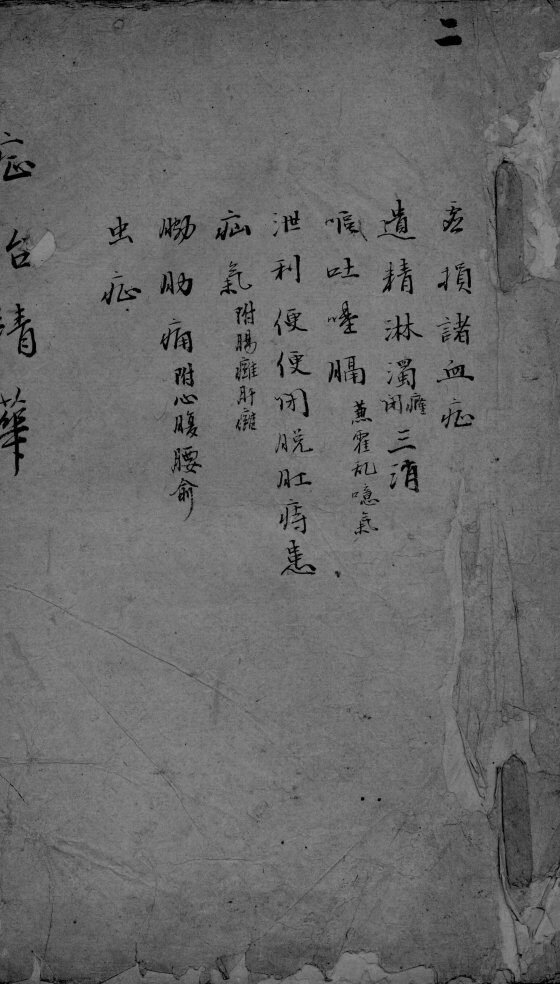 二
虚損諸血症
遺精淋濁癃閉三消
嘔吐噎膈蕙霍乱噫氣
泄利便便閉脱肛痔患
疝氣附腸癰肝癰
脇肋痛附心腹腰俞
虫症
症台精華